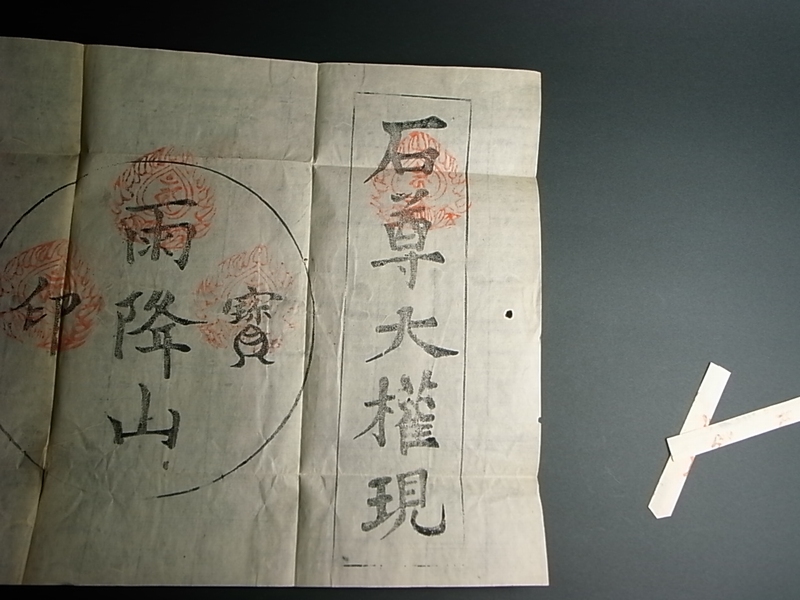 石尊大權現
寶
雨降山
印